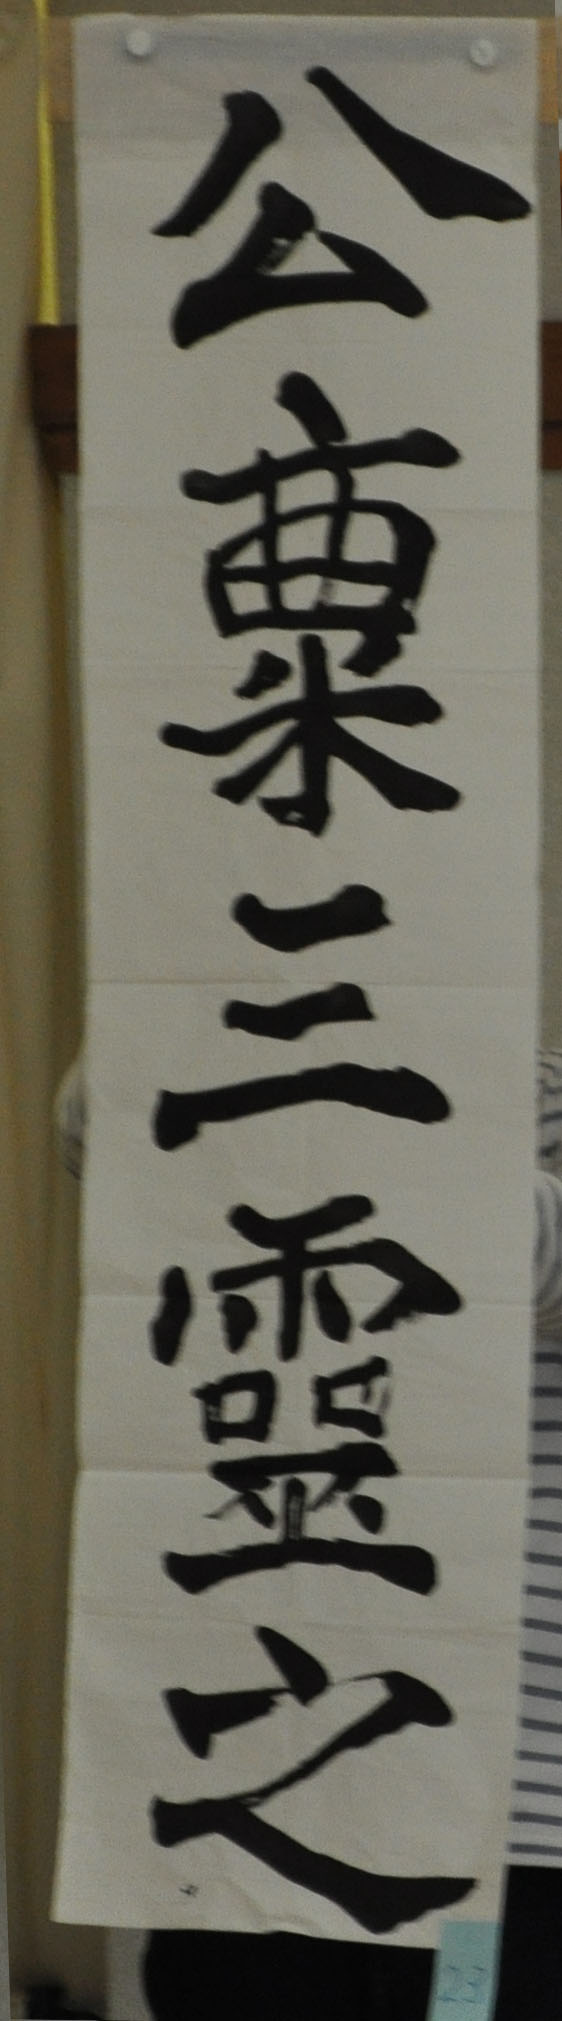 公稟三靈之